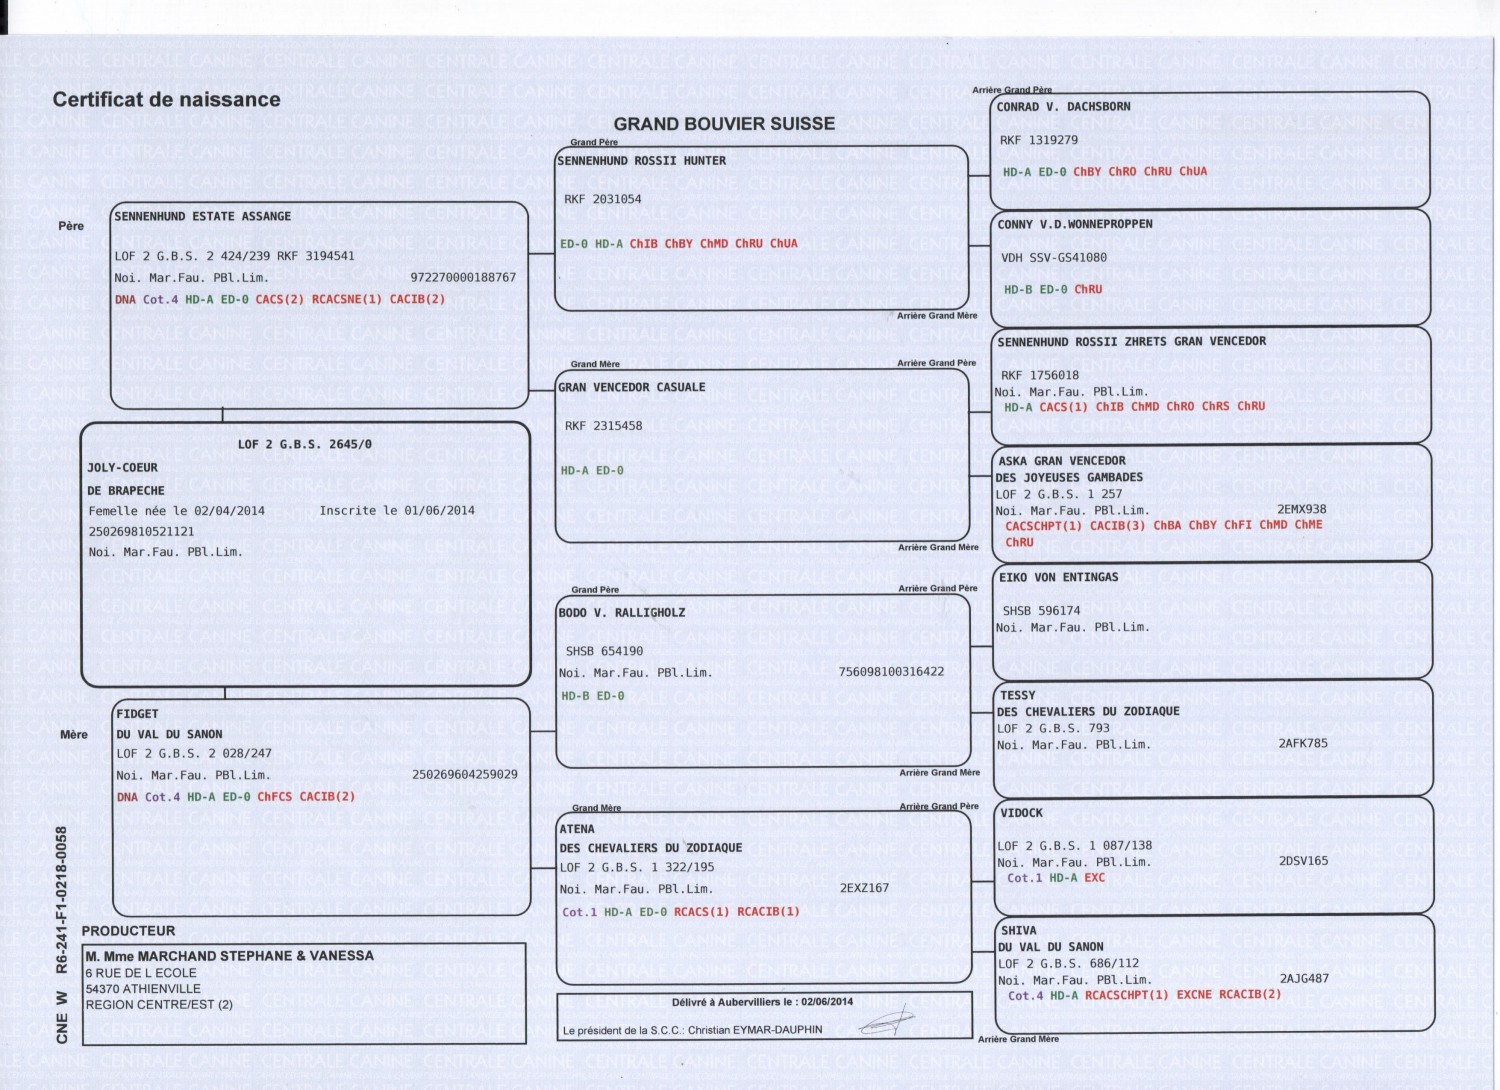 Certificat de naissance
GRAND BOUVIER SUISSE
Père
SENNENHUND ESTATE ASSANGE
LOF 2 G.B.S. 2 424/239 RKF 3194541
Noi. Mar.Fau. PBl.Lim. 972270000188767
DNA Cot.4 HD-A ED-0 CACS(2) RCACSNE(1) CACIB(2)
LOF 2 G.B.S. 2645/0
JOLY-COEUR
DE BRAPECHE
Femelle née le 02/04/2014 Inscrite le 01/06/2014
250269810521121
Noi. Mar.Fau. PBl.Lim.
Mère
FIDGET
DU VAL DU SANON
LOF 2 G.B.S. 2 028/247
Noi. Mar.Fau. PBl.Lim. 250269604259029
DNA Cot.4 HD-A ED-0 ChFCS CACIB(2)
Grand Père
SENNENHUND ROSSII HUNTER
RKF 2031054
ED-0 HD-A ChIB ChBY ChMD ChRU ChUA
Arrière Grand Mère
Grand Mère
Arrière Grand Père
GRAN VENCEDOR CASUALE
RKF 2315458
HD-A ED-0
Arrière Grand Mère
Grand Père
Arrière Grand Père
BODO V. RALLIGHOLZ
SHSB 654190
Noi. Mar.Fau. PBl.Lim. 756098100316422
HD-B ED-0
Arrière Grand Mère
Grand Mère
Arrière Grand Père
ATENA
DES CHEVALIERS DU ZODIAQUE
LOF 2 G.B.S. 1 322/195
Noi. Mar.Fau. PBl.Lim. 2EXZ167
Cot.1 HD-A ED-0 RCACS(1) RCACIB(1)
Arrière Grand Père
CONRAD V. DACHSBORN
RKF 1319279
HD-A ED-0 ChBY ChRO ChRU ChUA
CONNY V.D.WONNEPROPPEN
VDH SSV-GS41080
HD-B ED-0 ChRU
SENNENHUND ROSSII ZHRETS GRAN VENCEDOR
RKF 1756018
Noi. Mar.Fau. PBl.Lim.
HD-A CACS(1) ChIB ChMD ChRO ChRS ChRU
ASKA GRAN VENCEDOR
DES JOYEUSES GAMBADES
LOF 2 G.B.S. 1 257
Noi. Mar.Fau. PBl.Lim. 2EMX938
CACSCHPT(1) CACIB(3) ChBA ChBY ChFI ChMD ChME
ChRU
EIKO VON ENTINGAS
SHSB 596174
Noi. Mar.Fau. PBl.Lim.
TESSY
DES CHEVALIERS DU ZODIAQUE
LOF 2 G.B.S. 793
Noi. Mar.Fau. PBl.Lim. 2AFK785
VIDOCK
LOF 2 G.B.S. 1 087/138
Noi. Mar.Fau. PBl.Lim. 2DSV165
Cot.1 HD-A EXC
SHIVA
DU VAL DU SANON
LOF 2 G.B.S. 686/112
Noi. Mar.Fau. PBl.Lim. 2AJG487
Cot.4 HD-A RCACSCHPT(1) EXCNE RCACIB(2)
Arrière Grand Mère
CNE W R6-241-F1-0218-0058
PRODUCTEUR
M. Mme MARCHAND STEPHANE & VANESSA
6 RUE DE L ECOLE
54370 ATHIENVILLE
REGION CENTRE/EST (2)
Délivré à Aubervilliers le : 02/06/2014
Le président de la S.C.C.: Christian EYMAR-DAUPHIN